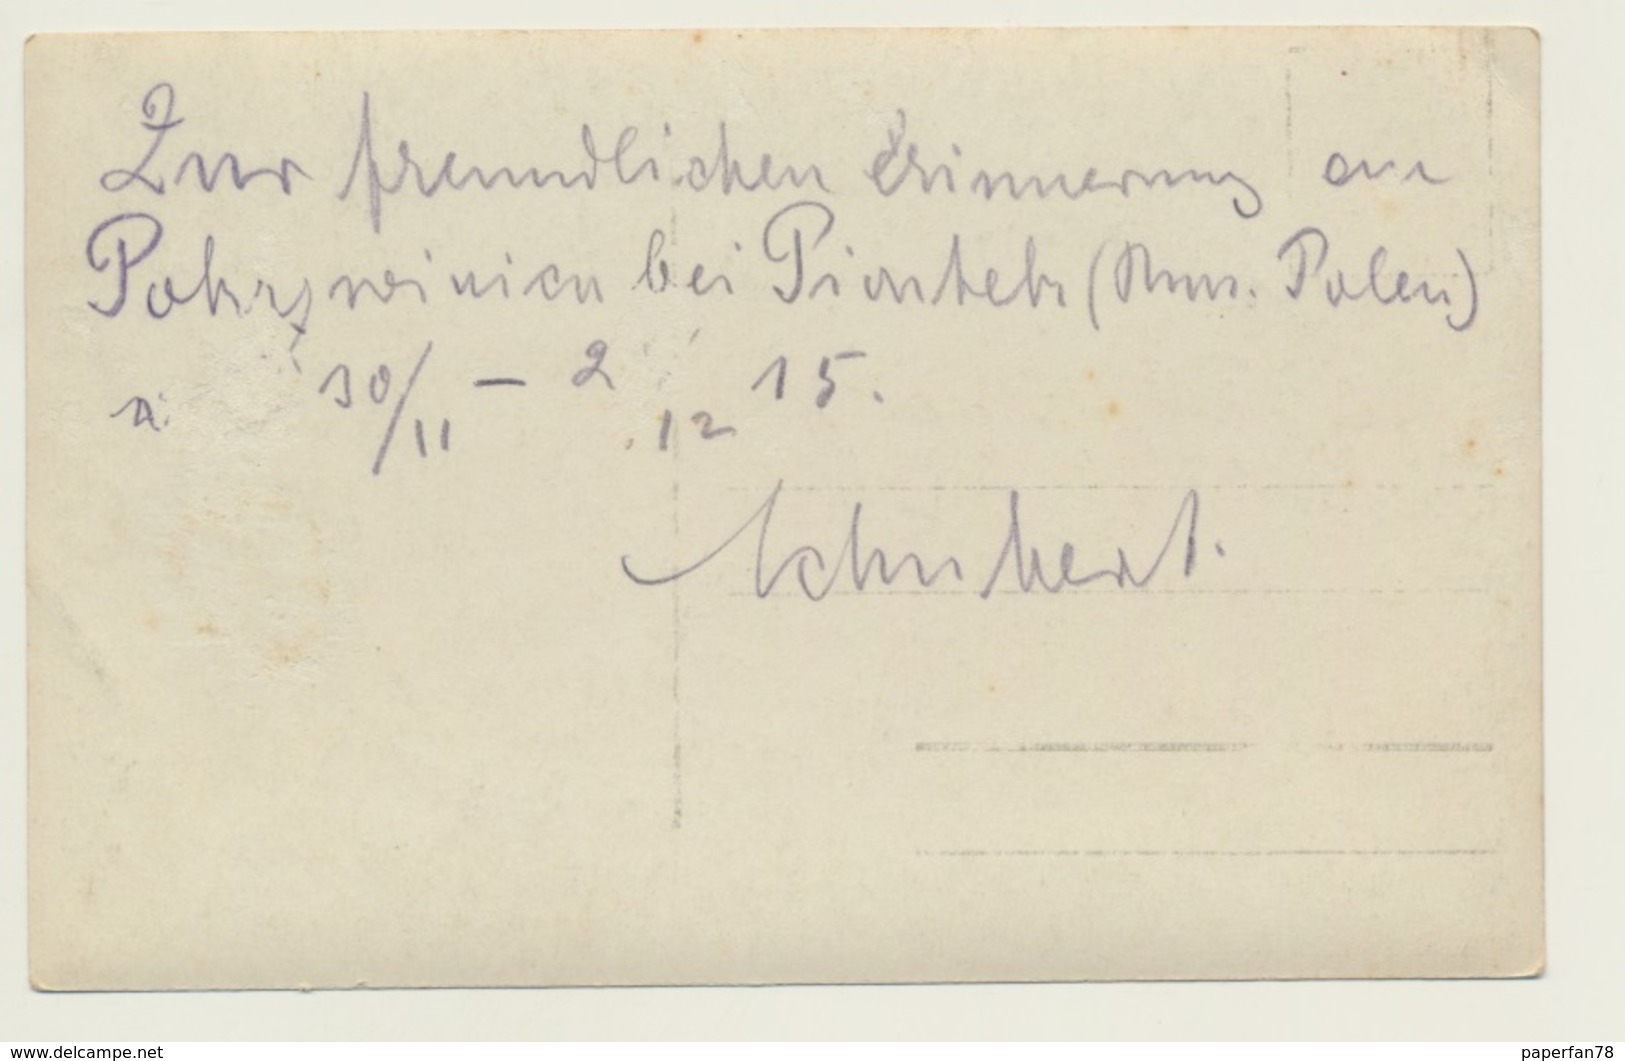 Zur freundlichen Erinnerung an
Pokrzwinica bei Piontek (Russ. Polen)
30/11 – 2 12 15.
Schubert.
www.delcampe.net
paperfan78